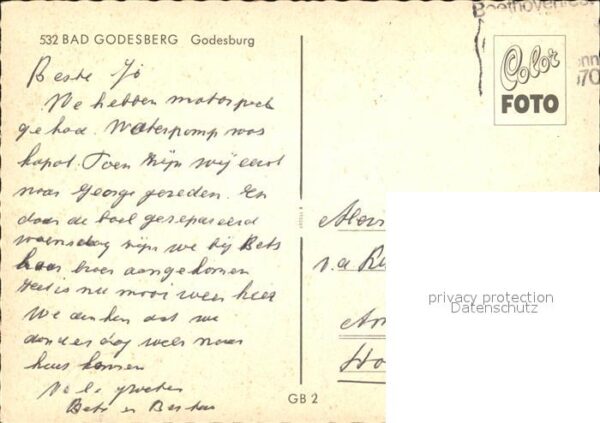 532 BAD GODESBERG Godesburg
Beethovenfest
Color
FOTO
Beste Jo
We hebben motorpech
gehad. Waterpomp was
kapot. Toen zijn wij eerst
naar George gereden. En
daar de boel gerepareerd
woensdag zijn we bij Bets
haar broer aangekomen
Het is nu mooi weer hier
We denken dat we
donderdag weer naar
huis komen
Vele groeten
Bets en
v.d.
GB 2
privacy protection
Datenschutz